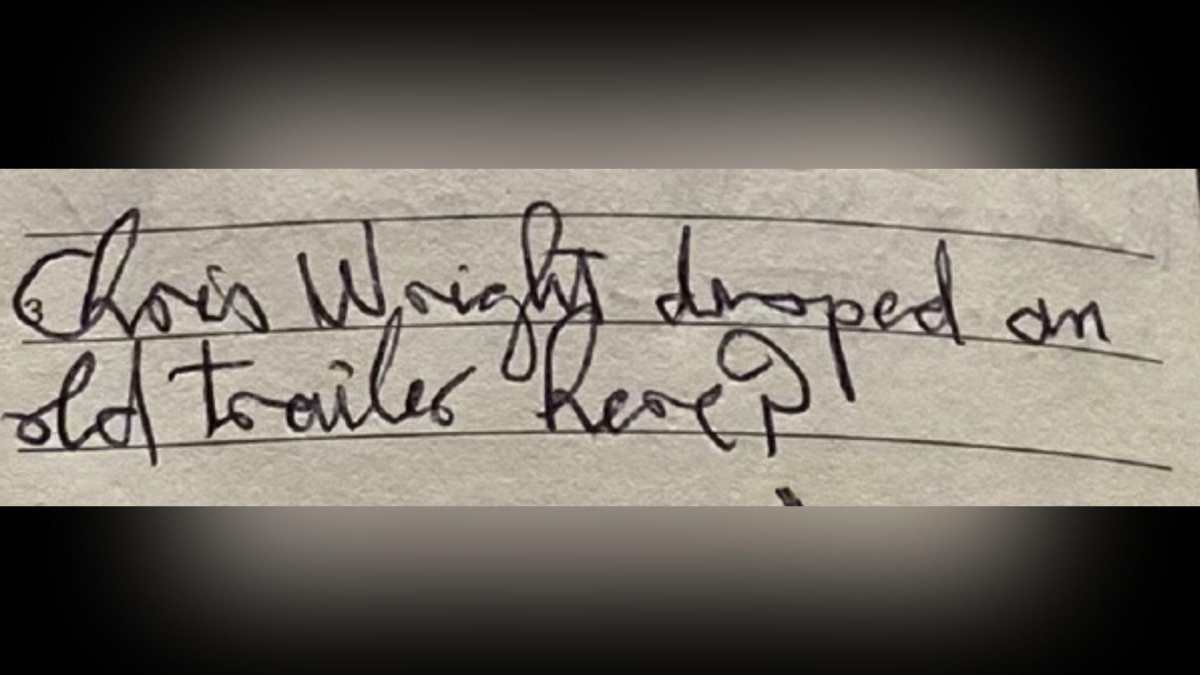 Chris Wright droped an
old trailer here?